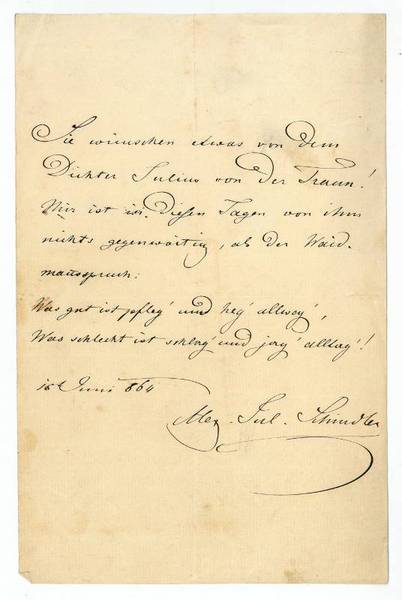 Sie wünschen etwas von dem
Dichter Julius von der Traun!
Mir ist in diesen Tagen von ihm
nichts gegenwärtig, als der Waid-
mannsspruch:
Was gut ist pfleg' und heg' allweg',
Was schlecht ist schlag' und jag' alltag'!
Juni 864
Alex. Jul. Schindler